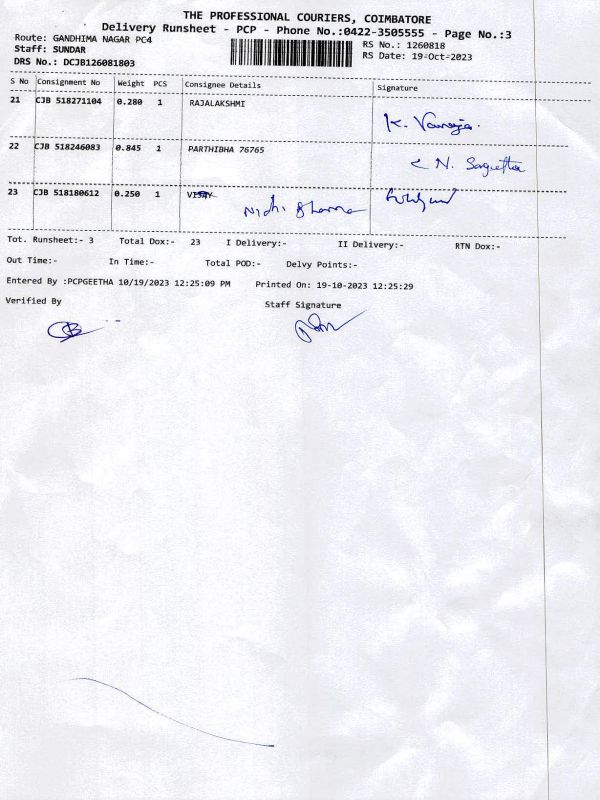 THE PROFESSIONAL COURIERS, COIMBATORE
Delivery Runsheet - PCP - Phone No.:0422-3505555 - Page No.:3
Route: GANDHIMA NAGAR PC4
RS No.: 1260818
Staff: SUNDAR
RS Date: 19-Oct-2023
DRS No.: DCJB126081803
S No Consignment No Weight PCS Consignee Details Signature
21 CJB 518271104 0.280 1 RAJALAKSHMI
K. Vanaja.
22 CJB 518246083 0.845 1 PARTHIBHA 76765
N. Sangeetha
23 CJB 518180612 0.250 1 VIJAY
Nidhi Sharma
Tot. Runsheet:- 3 Total Dox:- 23 I Delivery:- II Delivery:- RTN Dox:-
Out Time:- In Time:- Total POD:- Delvy Points:-
Entered By :PCPGEETHA 10/19/2023 12:25:09 PM Printed On: 19-10-2023 12:25:29
Verified By Staff Signature